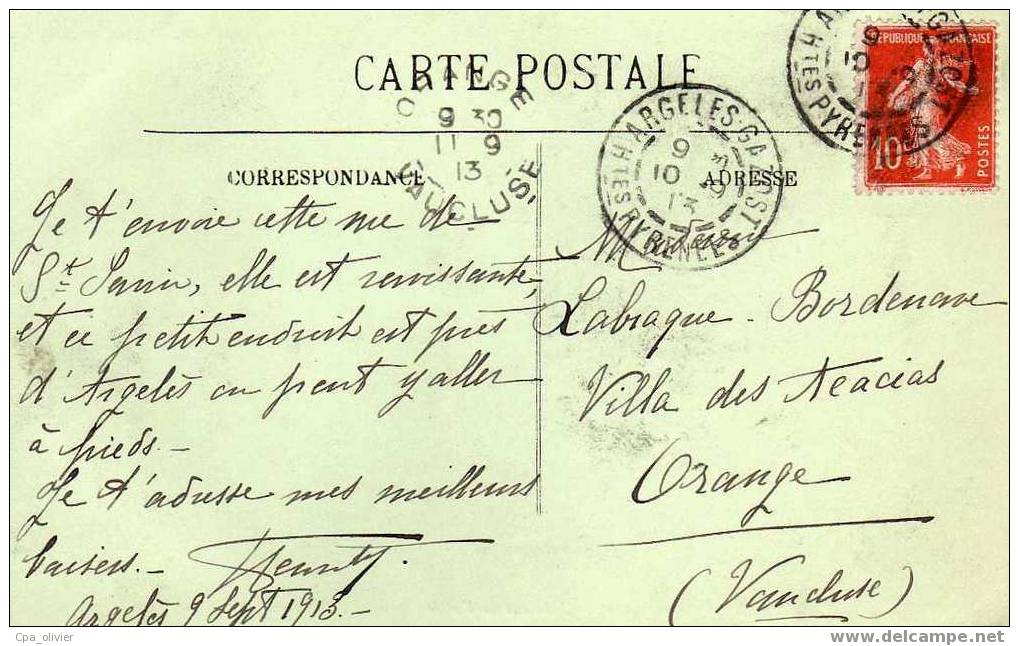 CARTE POSTALE
ORANGE
9 30
11 9
13
VAUCLUSE
ARGELES-GAZOST
9
10 9
13
HTES PYRENEES
ARGELES-GAZOST
9
10 9
13
HTES PYRENEES
REPUBLIQUE FRANCAISE
10
POSTES
CORRESPONDANCE
ADRESSE
Je t'envoie cette vue de
St Savin, elle est ravissante,
et ce petit endroit est près
d'Argelès on peut y aller
à pieds.-
Je t'adresse mes meilleurs
baisers.-
Argelès 9 Sept 1913.-
Labraque - Bordenave
Villa des Acacias
Orange
(Vaucluse)
Cpa_olivier
http://www.delcampe.net